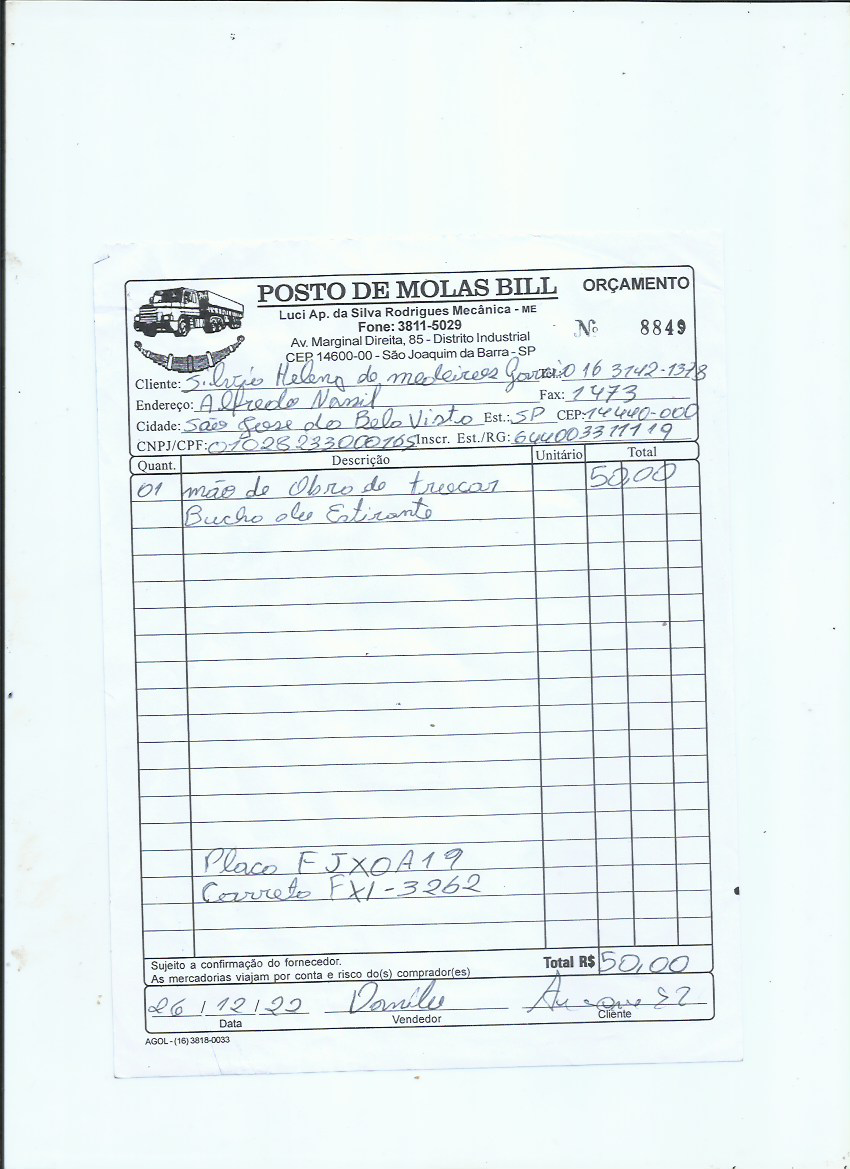 POSTO DE MOLAS BILL ORÇAMENTO
Luci Ap. da Silva Rodrigues Mecânica - ME
Fone: 3811-5029
Nº 8849
Av. Marginal Direita, 85 - Distrito Industrial
CEP 14600-00 - São Joaquim da Barra - SP
Cliente: Silvio Helena de medeiros 016 3142-1378
Endereço: Alfredo Fax: 1473
Cidade: São Jose da Bela Vista Est.: SP CEP: 14440-000
CNPJ/CPF: 01028233000165 Inscr. Est./RG: 644003311119
Quant. Descrição Unitário Total
01 mão de Obra de trocar 50,00
Bucha de Estirante
Placa FJX0A19
Carreta FXI-3262
Sujeito a confirmação do fornecedor.
As mercadorias viajam por conta e risco do(s) comprador(es)
Total R$ 50,00
26/12/22 Danilo
Data Vendedor Cliente
AGOL - (16) 3818-0033